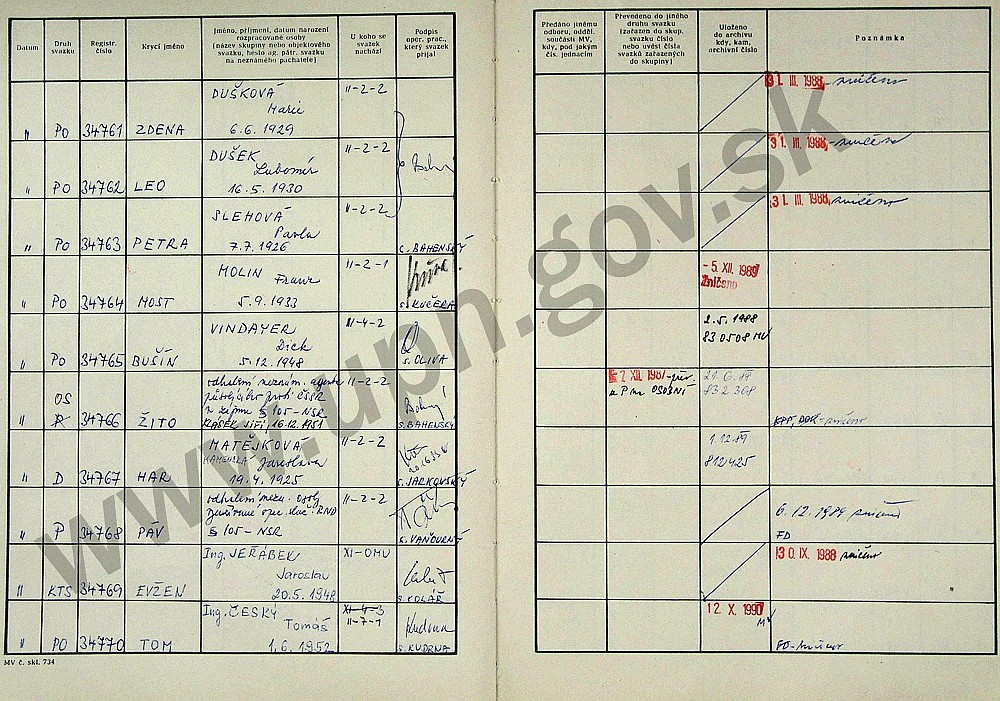 Datum
Druh
svazku
Registr.
číslo
Krycí jméno
Jméno, příjmení, datum narození
rozpracované osoby
(název skupiny nebo objektového
svazku, heslo ag. pátr. svazku
na neznámého pachatele)
U koho se
svazek
nachází
Podpis
oper. prac.,
který svazek
přijal
Předáno jinému
odboru, odděl.
součásti MV,
kdy, pod jakým
čís. jednacím
Převedeno do jiného
druhu svazku
(zařazen do skup.
svazku číslo
nebo uvést čísla
svazků zařazených
do skupiny)
Uloženo
do archivu
kdy, kam,
archivní číslo
Poznámka
" PO 34761 ZDENA
DUŠKOVÁ
Marie
6.6.1929
II-2-2
31. III. 1988 - zničeno
" PO 34762 LEO
DUŠEK
Lubomír
16.5.1930
II-2-2
31. III. 1988 - zničeno
" PO 34763 PETRA
SLEHOVÁ
Pavla
7.7.1926
II-2-2
C. BAHENSKÝ
31. III. 1988 - zničeno
" PO 34764 MOST
MOLIN
Franz
5.9.1933
II-2-1
S. KUČERA
- 5. XII. 1989
Zničeno
" PO 34765 BUŠÍN
VINDAYER
Dick
5.12.1948
S. OLIVA
2.5.1988
830508 MV
" OS
34766 ŽITO
odhalení neznám. agenta
ČSSR
§ 105 - NSR
16.12.1951
II-2-2
S. BAHENSKÝ
XII. 1987
OSOBNÍ
832308
zničeno
" D 34767 HAR
MATĚJKOVÁ
Jaroslava
19.4.1925
II-2-2
S. JARKOVSKÝ
1.12.89
812425
" P 34768 PÁV
odhalení
§ 105 - NSR
II-2-2
VAŇOURNÝ
6.12.1989 zničení
FD
" KTS 34769 EVŽEN
Ing. JEŘÁBEK
Jaroslav
20.5.1948
XI-OMV
S. KOLÁŘ
30. IX. 1988 zničeno
" PO 34770 TOM
Ing. ČESKÝ
Tomáš
1.6.1952
XI-4-3
II-7-1
Kudrna
S. KUDRNA
12. X. 1990
MV
FD - zničeno
MV č. skl. 734
www.upn.gov.sk